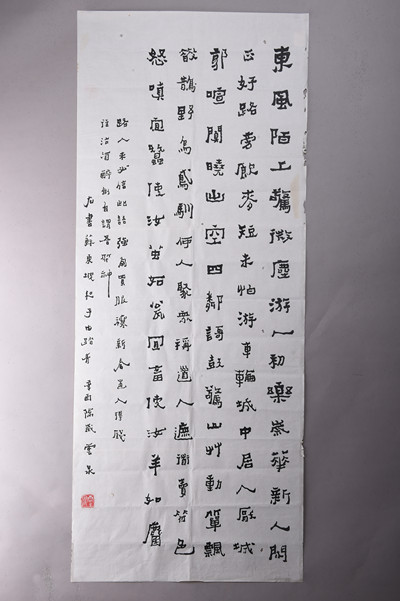 東風陌上驚微塵游人初樂歲華新人閒
正好路旁飲麥短未怕游車輪城中居人厭城
郭喧闐曉出空四鄰謌鼓驚山艸動簞瓢
野烏鳶馴何人聚眾稱道人遮道賣符色
怒嗔宜蠶使汝繭如甕宜畜使汝羊如麕
路人未必信此語強為買服禳新春道人得錢
徑沽酒醉倒自謂吾符神
右書蘇東坡和子由踏青 辛酉